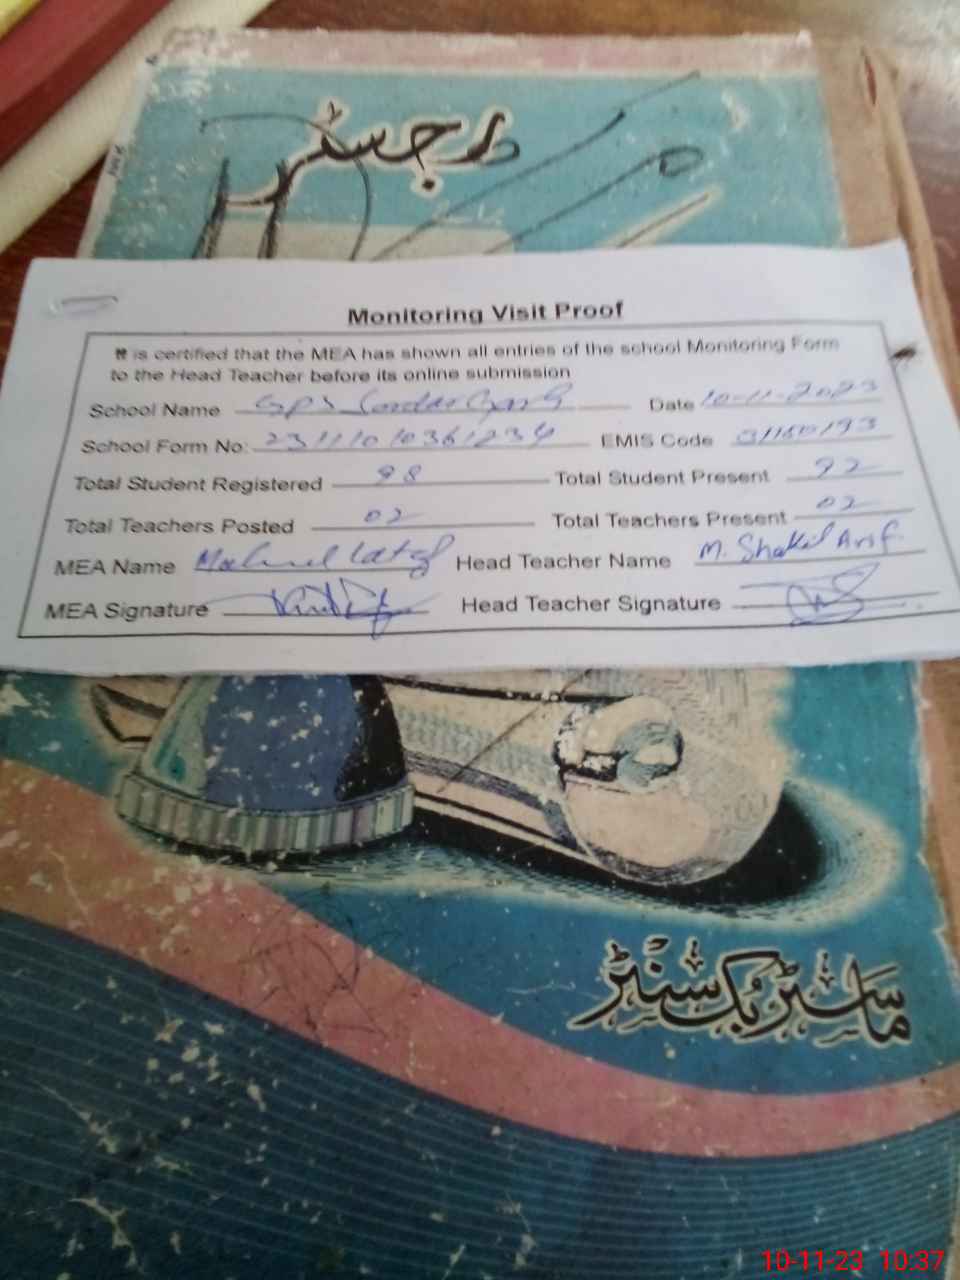 رجسٹر
Monitoring Visit Proof
It is certified that the MEA has shown all entries of the school Monitoring Form
to the Head Teacher before its online submission
School Name GPS Date 10-11-2023
School Form No: EMIS Code
Total Student Registered 98 Total Student Present 92
Total Teachers Posted 02 Total Teachers Present 02
MEA Name Head Teacher Name M. Shakil Arif
MEA Signature Head Teacher Signature
ماسٹر بک سنٹر
10-11-23 10:37